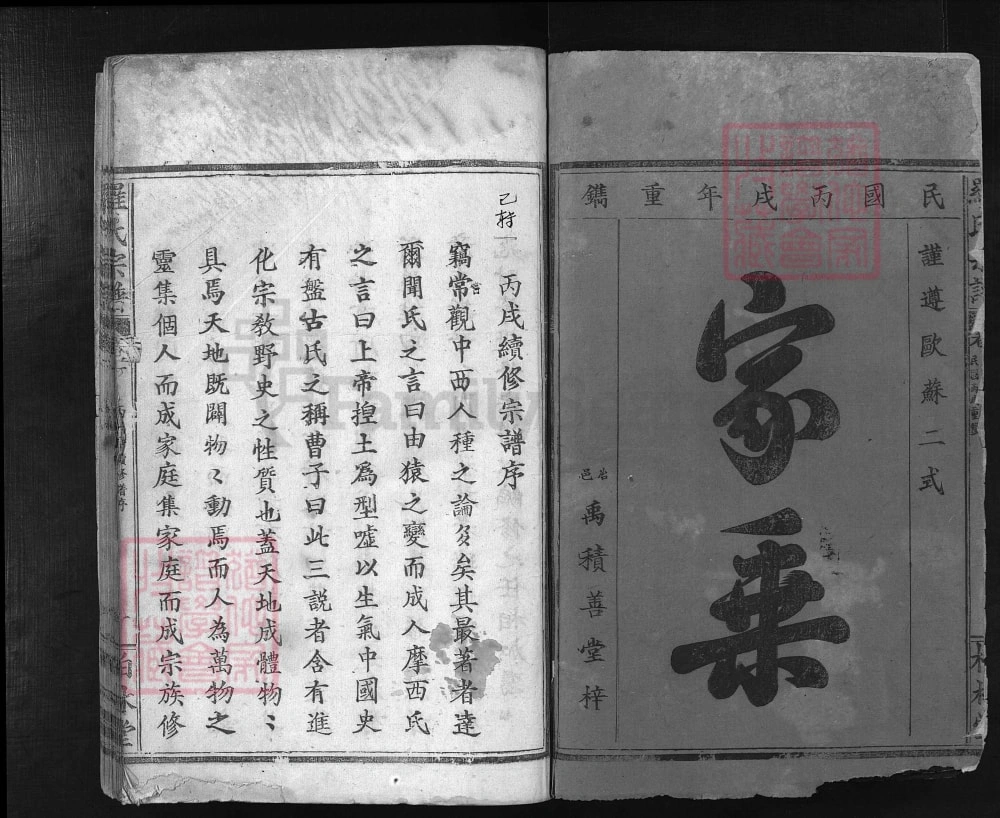 民國丙戌年重鐫
謹遵歐蘇二式
家乘
邑 禹積善堂梓
丙戌續修宗譜序
竊常觀中西人種之論多矣其最著者達
爾聞氏之言曰由猿之變而成人摩西氏
之言曰上帝揘土為型噓以生氣中國史
有盤古氏之稱曹子曰此三説者含有進
化宗教野史之性質也蓋天地成體物〻
具焉天地既闢物〻動焉而人為萬物之
靈集個人而成家庭集家庭而成宗族修
羅氏宗譜
柏林堂
FamilySearch